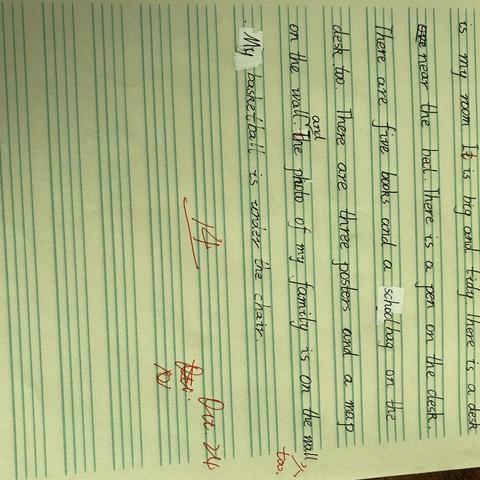 is my room It is big and tidy. There is a desk
near the bed. There is a pen on the desk.
There are five books and a schoolbag on the
desk too. There are three posters and a map
and
on the wall. The photo of my family is on the wall
too.
My basketball is under the chair.
14
Oct. 24